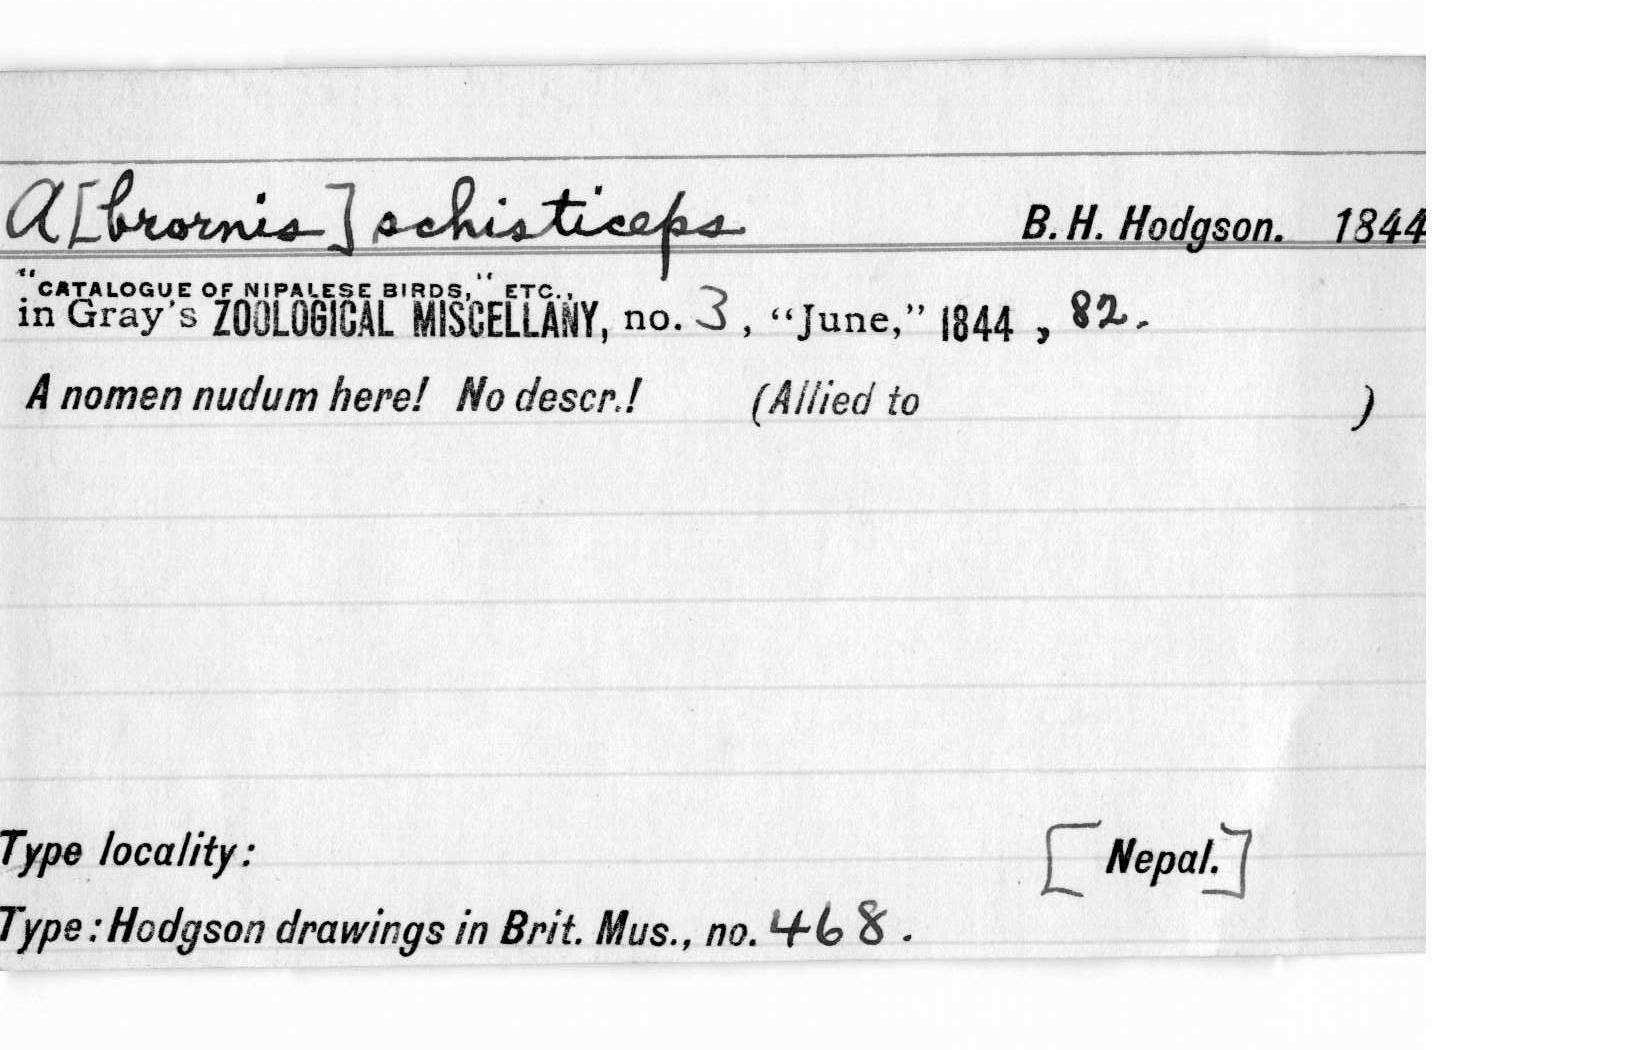 A[brornis] schisticeps B. H. Hodgson. 1844
"CATALOGUE OF NIPALESE BIRDS," ETC.,
in Gray's ZOOLOGICAL MISCELLANY, no. 3, "June," 1844, 82.
A nomen nudum here! No descr.! (Allied to )
Type locality: [Nepal.]
Type: Hodgson drawings in Brit. Mus., no. 468.